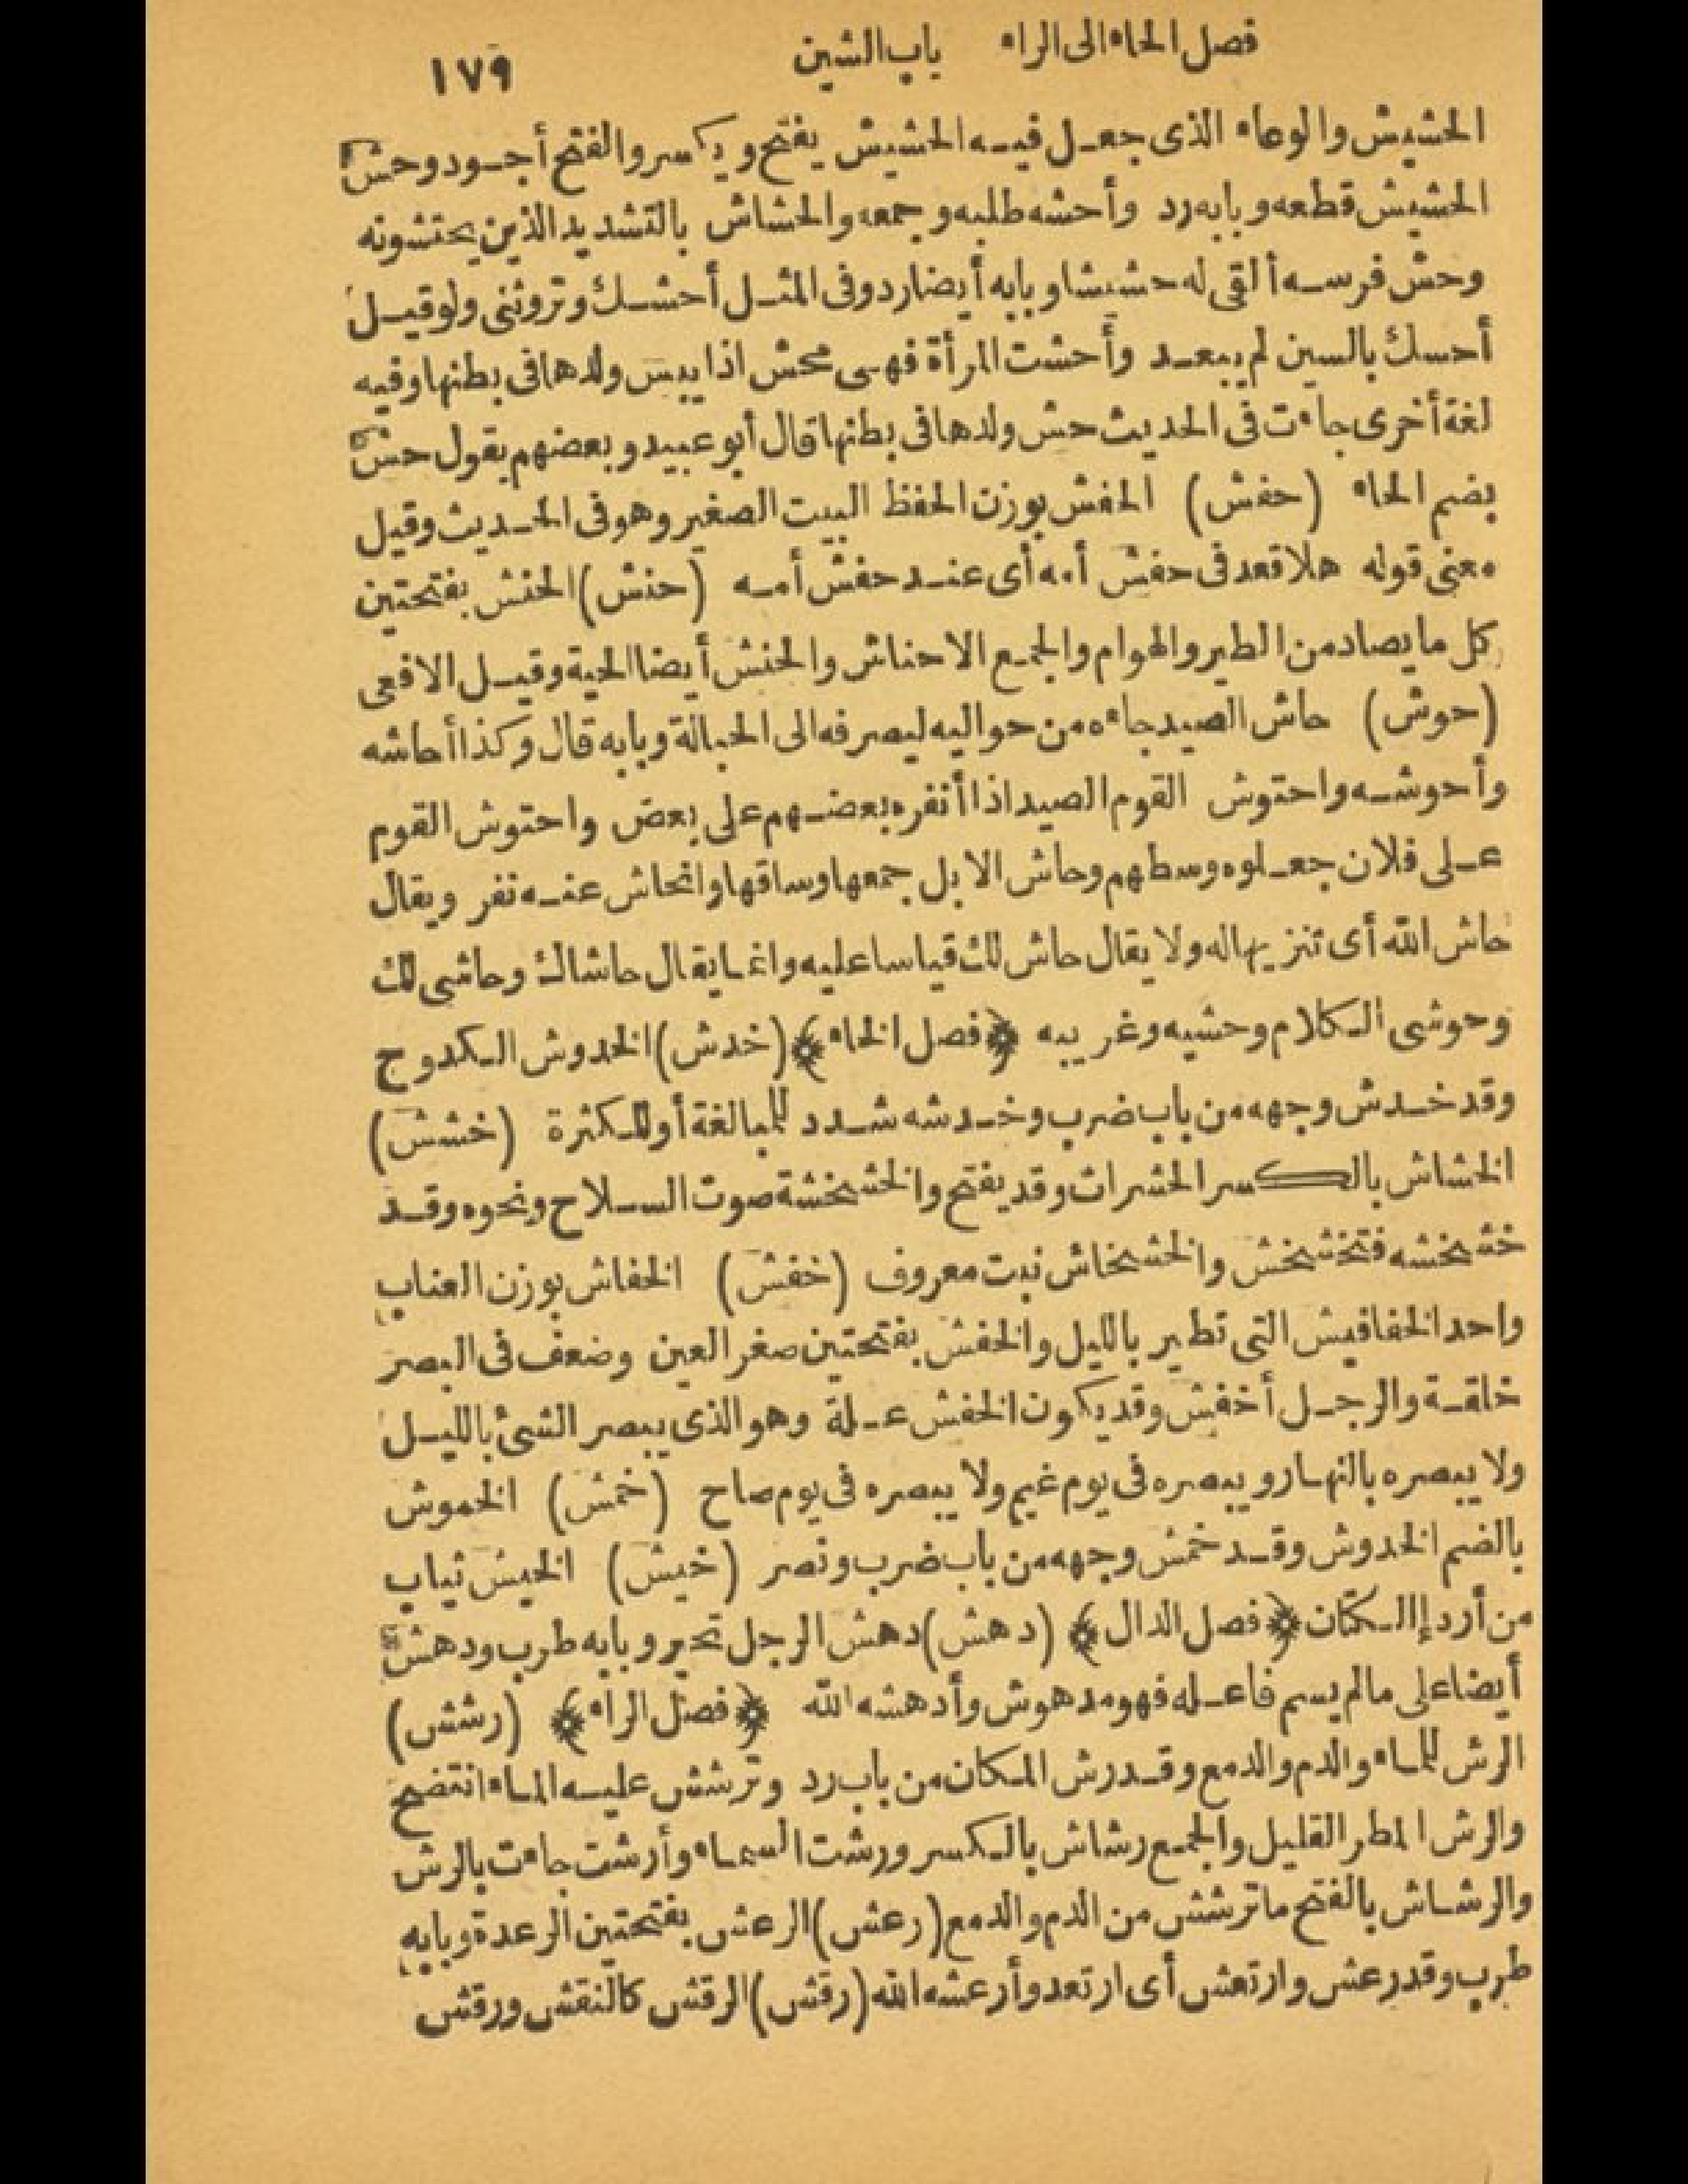 فصل الحاء الى الراء باب الشين ١٧٩
الحشيش والوعاء الذى جعل فيه الحشيش يفتح ويكسر والفتح أجود وحش
الحشيش قطعه وبابه رد وأحشه طلبه وجمعه والحشاش بالتشديد الذين يحتشونه
وحش فرسه ألقى له حشيشا وبابه أيضا رد وفى المثل أحشك وتروثنى ولو قيل
أحسك بالسين لم يبعد وأحشت المرأة فهى محش اذا يبس ولدها فى بطنها وفيه
لغة أخرى جاءت فى الحديث حش ولدها فى بطنها قال أبو عبيد وبعضهم يقول حش
بضم الحاء (حفش) الحفش بوزن الحفظ البيت الصغير وهو فى الحديث وقيل
معنى قوله هلا قعد فى حفش أمه أى عند حفش أمه (حنش) الحنش بفتحتين
كل ما يصاد من الطير والهوام والجمع الاحناش والحنش أيضا الحية وقيل الافعى
(حوش) حاش الصيد جاءه من حواليه ليصرفه الى الحبالة وبابه قال وكذا أحاشه
وأحوشه واحتوش القوم الصيد اذا أنفره بعضهم على بعض واحتوش القوم
على فلان جعلوه وسطهم وحاش الابل جمعها وساقها وانحاش عنه نفر ويقال
حاش الله أى تنزيها له ولا يقال حاش لك قياسا عليه وانما يقال حاشاك وحاشى لك
وحوشى الكلام وحشيه وغريبه ﴿فصل الخاء﴾ (خدش) الخدوش الكدوح
وقد خدش وجهه من باب ضرب وخدشه شدد للمبالغة أو للكثرة (خشش)
الخشاش بالكسر الحشرات وقد يفتح والخشخشة صوت السلاح ونحوه وقد
خشخشه فتخشخش والخشخاش نبت معروف (خفش) الخفاش بوزن العناب
واحد الخفافيش التى تطير بالليل والخفش بفتحتين صغر العين وضعف فى البصر
خلقة والرجل أخفش وقد يكون الخفش علة وهو الذى يبصر الشئ بالليل
ولا يبصره بالنهار ويبصره فى يوم غيم ولا يبصره فى يوم صاح (خمش) الخموش
بالضم الخدوش وقد خمش وجهه من باب ضرب ونصر (خيش) الخيش ثياب
من أردإ الكتان ﴿فصل الدال﴾ (دهش) دهش الرجل تحير وبابه طرب ودهش
أيضا على ما لم يسم فاعله فهو مدهوش وأدهشه الله ﴿فصل الراء﴾ (رشش)
الرش للماء والدم والدمع وقد رش المكان من باب رد وترشش عليه الماء انتضح
والرش المطر القليل والجمع رشاش بالكسر ورشت السماء وأرشت جاءت بالرش
والرشاش بالفتح ما ترشش من الدم والدمع (رعش) الرعش بفتحتين الرعدة وبابه
طرب وقد رعش وارتعش أى ارتعد وأرعشه الله (رقش) الرقش كالنقش ورقش